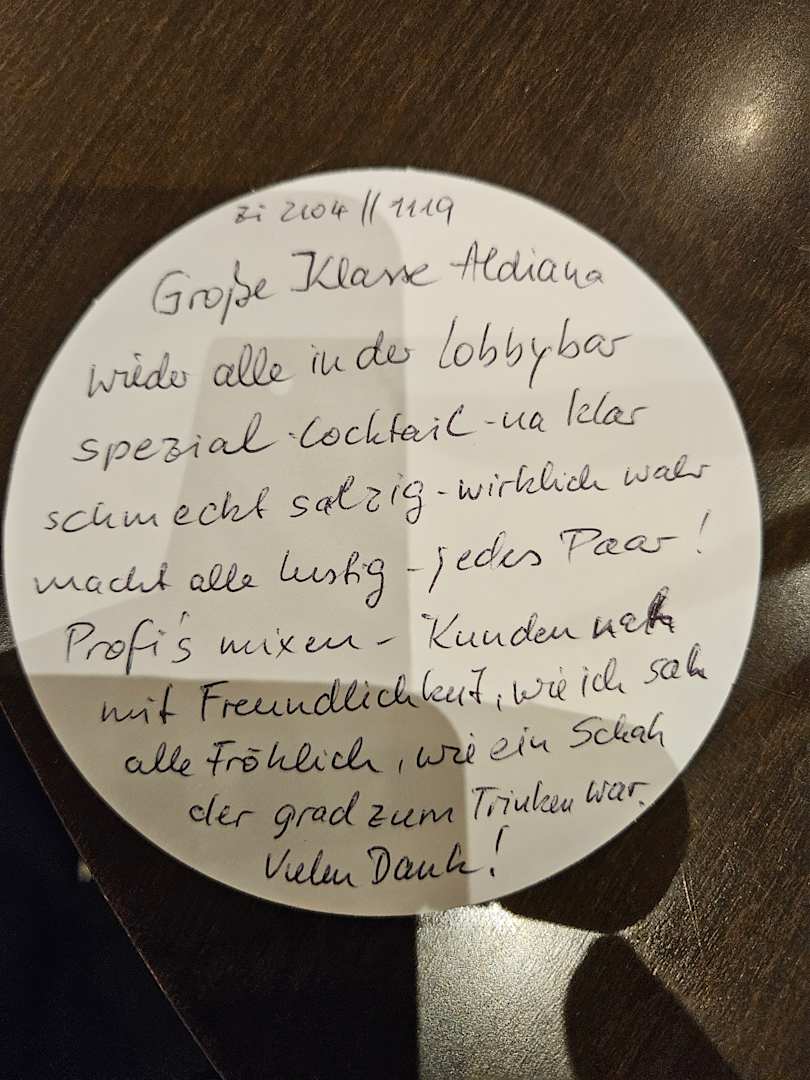 Zi 2104 // 1119
Große Klasse Aldiana
wieder alle in der Lobbybar
spezial-Cocktail - na klar
schmeckt salzig - wirklich wahr
macht alle lustig - jedes Paar!
Profi's mixen - Kunden nah
mit Freundlichkeit, wie ich sah
alle Fröhlich, wie ein Schah
der grad zum Trinken war.
Vielen Dank!